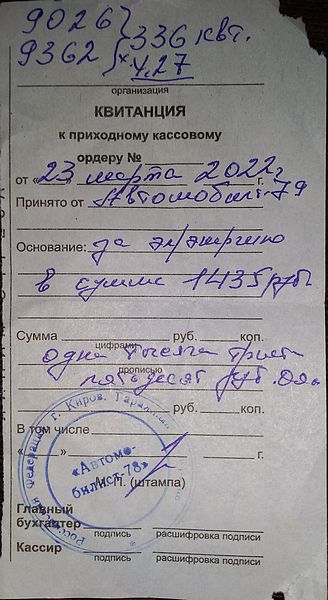 9026
9362 } 336 квт.
х 4.27
организация
КВИТАНЦИЯ
к приходному кассовому
ордеру №
от « 23 » марта 2022 г.
Принято от
Основание: за эл/энергию
в сумме 1435 руб
Сумма руб. коп.
цифрами
одна тысяча
прописью
руб.
руб. коп.
В том числе
« » г.
М. П. (штампа)
Российская Федерация г. Киров,
«Автомо-
билист-78»
Главный
бухгалтер
подпись расшифровка подписи
Кассир
подпись расшифровка подписи